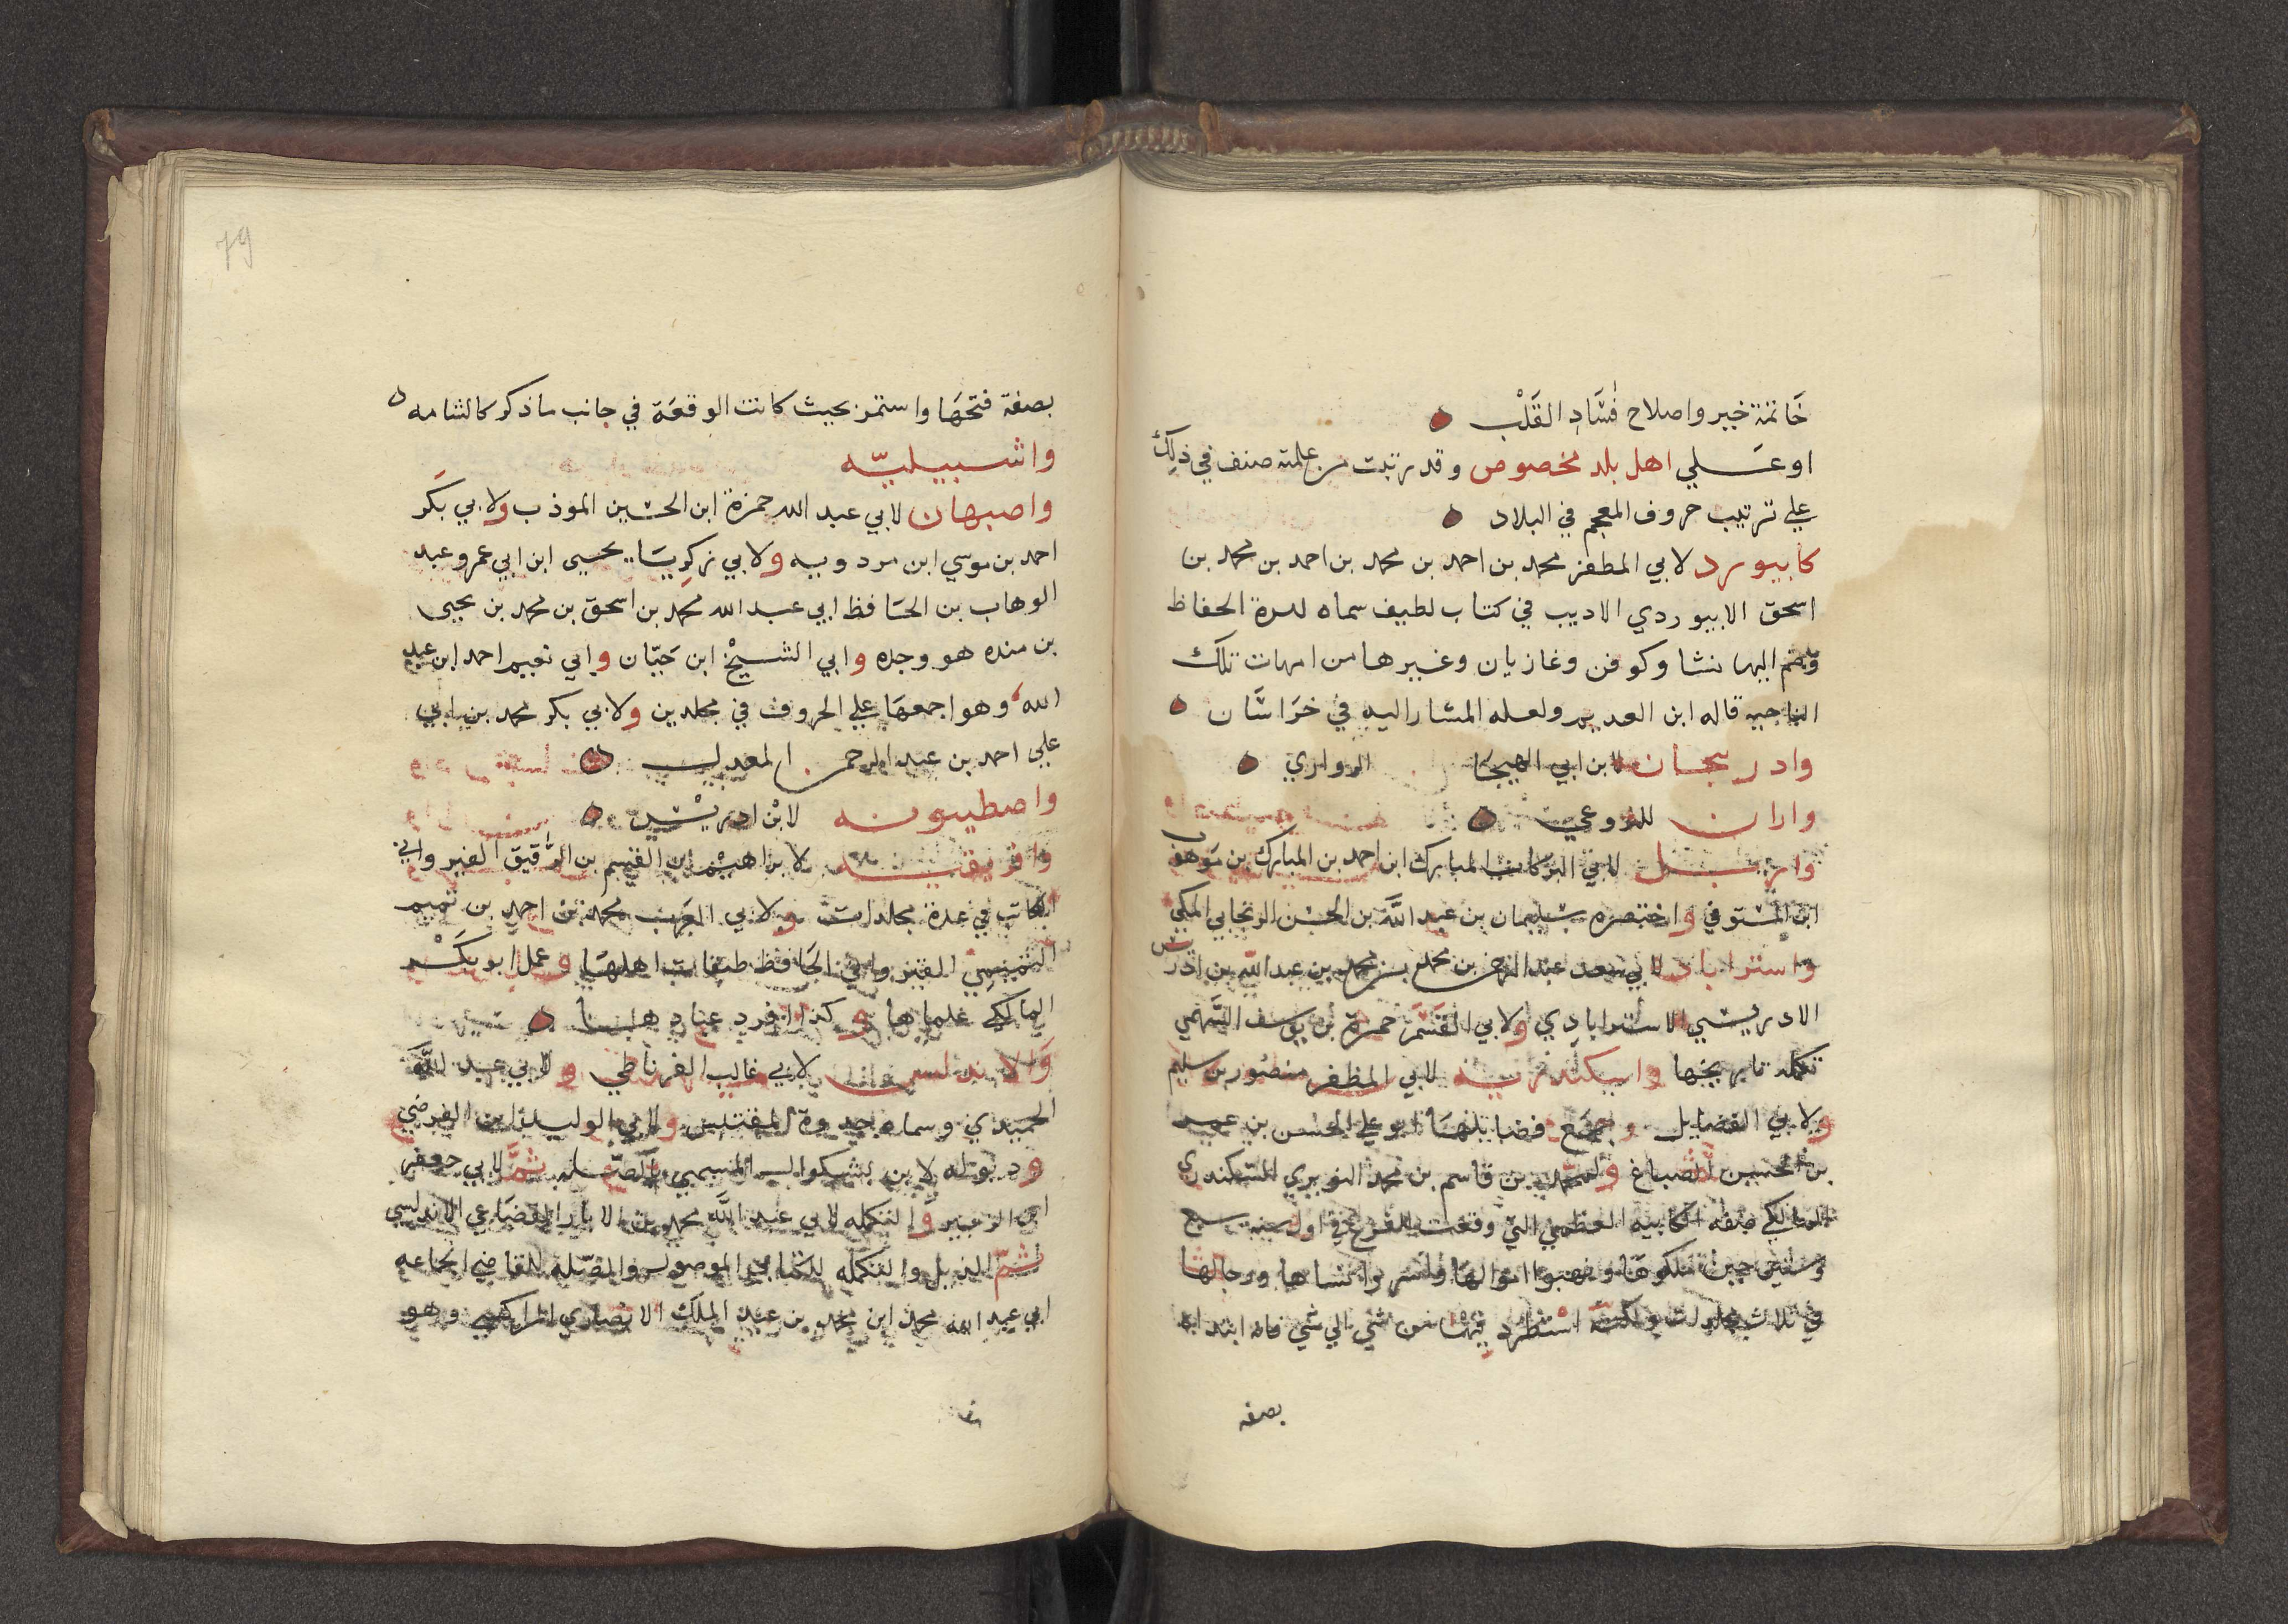 خاتمة خير واصلاح فساد القلب
او علي اهل بلد مخصوص وقد رتبت من علمته صنف في ذلك
علي ترتيب حروف المعجم في البلاد
كابيورد لابي المظفر محمد بن احمد بن محمد بن احمد بن محمد بن
اسحق الابيوردي الاديب في كتاب لطيف سماه الحفاظ
اليها نسا وكوفن وغازيان وغيرها من امهات تلك
الناحيه قاله ابن العديم ولعله المشار اليه في خراسان
وادربيجان لابن ابي الهيجا الرواري
واران للبروعي
واربل لابي البركات المبارك ابن احمد بن المبارك بن موهوب
ابن المستوفي واختصره سليمان بن عبد الله بن الحسن الريحاني المكي
واستراباد لابي سعد عبد الرحمن بن محمد بن محمد بن عبد الله بن ادريس
الادريسي الاسترابادي ولابي القسم حمزة بن يوسف السهمي
تكملة تاريخها واسكندرية لابي المظفر منصور بن سليم
ولابي الفضايل وجمع فضايلها ابو علي الحسن بن عمر
بن الحسين الصباغ ولمحمد بن قاسم بن محمد النويري السكندري
المالكي صفه الكاينه العظمي التي وقعت للفرنج في اول سنة سبع
وستين حين ملكوها ونهبوا اموالها واسروا نساها ورجالها
في ثلاث مجلدات ولكنه استطرد فيها من شي الي شي فانه ابتدا
بصفه
79
بصفة فتحها واستمر بحيث كانت الوقعة في جانب ماذكر كالشامه
واشبيليه
واصبهان لابي عبد الله حمزة ابن الحسين الموذب ولابي بكر
احمد بن موسي ابن مردويه ولابي زكريا يحيي ابن ابي عمرو عبد
الوهاب بن الحافظ ابي عبد الله محمد بن اسحق بن محمد بن يحيي
بن منده هو وجده وابي الشيخ ابن حيان وابي نعيم احمد ابن عبد
الله وهو اجمعها علي الحروف في مجلدين ولابي بكر محمد بن ابي
علي احمد بن عبد الرحمن المعدل
واصطيبونه لابن ادريس
وافريقية لابراهيم ابن القسم بن الرقيق القير وابي
الكاتب في عدة مجلدات ولابي العرب محمد بن احمد بن تميم
التميمي القيرواني الحافظ طبقات اهلها وعمل ابو بكر
المالكي علماها وكذا افرد عباد هابا
والاندلس لابي غالب الغرناطي ولابي عبد الله
الحميدي وسماه جدوة المقتبس ولابي الوليد ابن الفرضي
وديوله لابن بشكوال المسمي بالصلة ثم لابي جعفر
ابن الزبير والتكمله لابي عبد الله محمد بن الابار القضاعي الاندلسي
ثم الذيل والتكمله لكتابي الموصول والصلة للقاضي الجماعه
ابي عبد الله محمد ابن محمد بن عبد الملك الانصاري المراكشي وهو